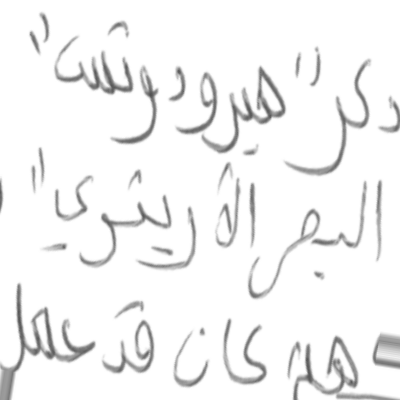 ذكر "هيرودوتس"
البحر الأريتري"
هل كان قد عمل